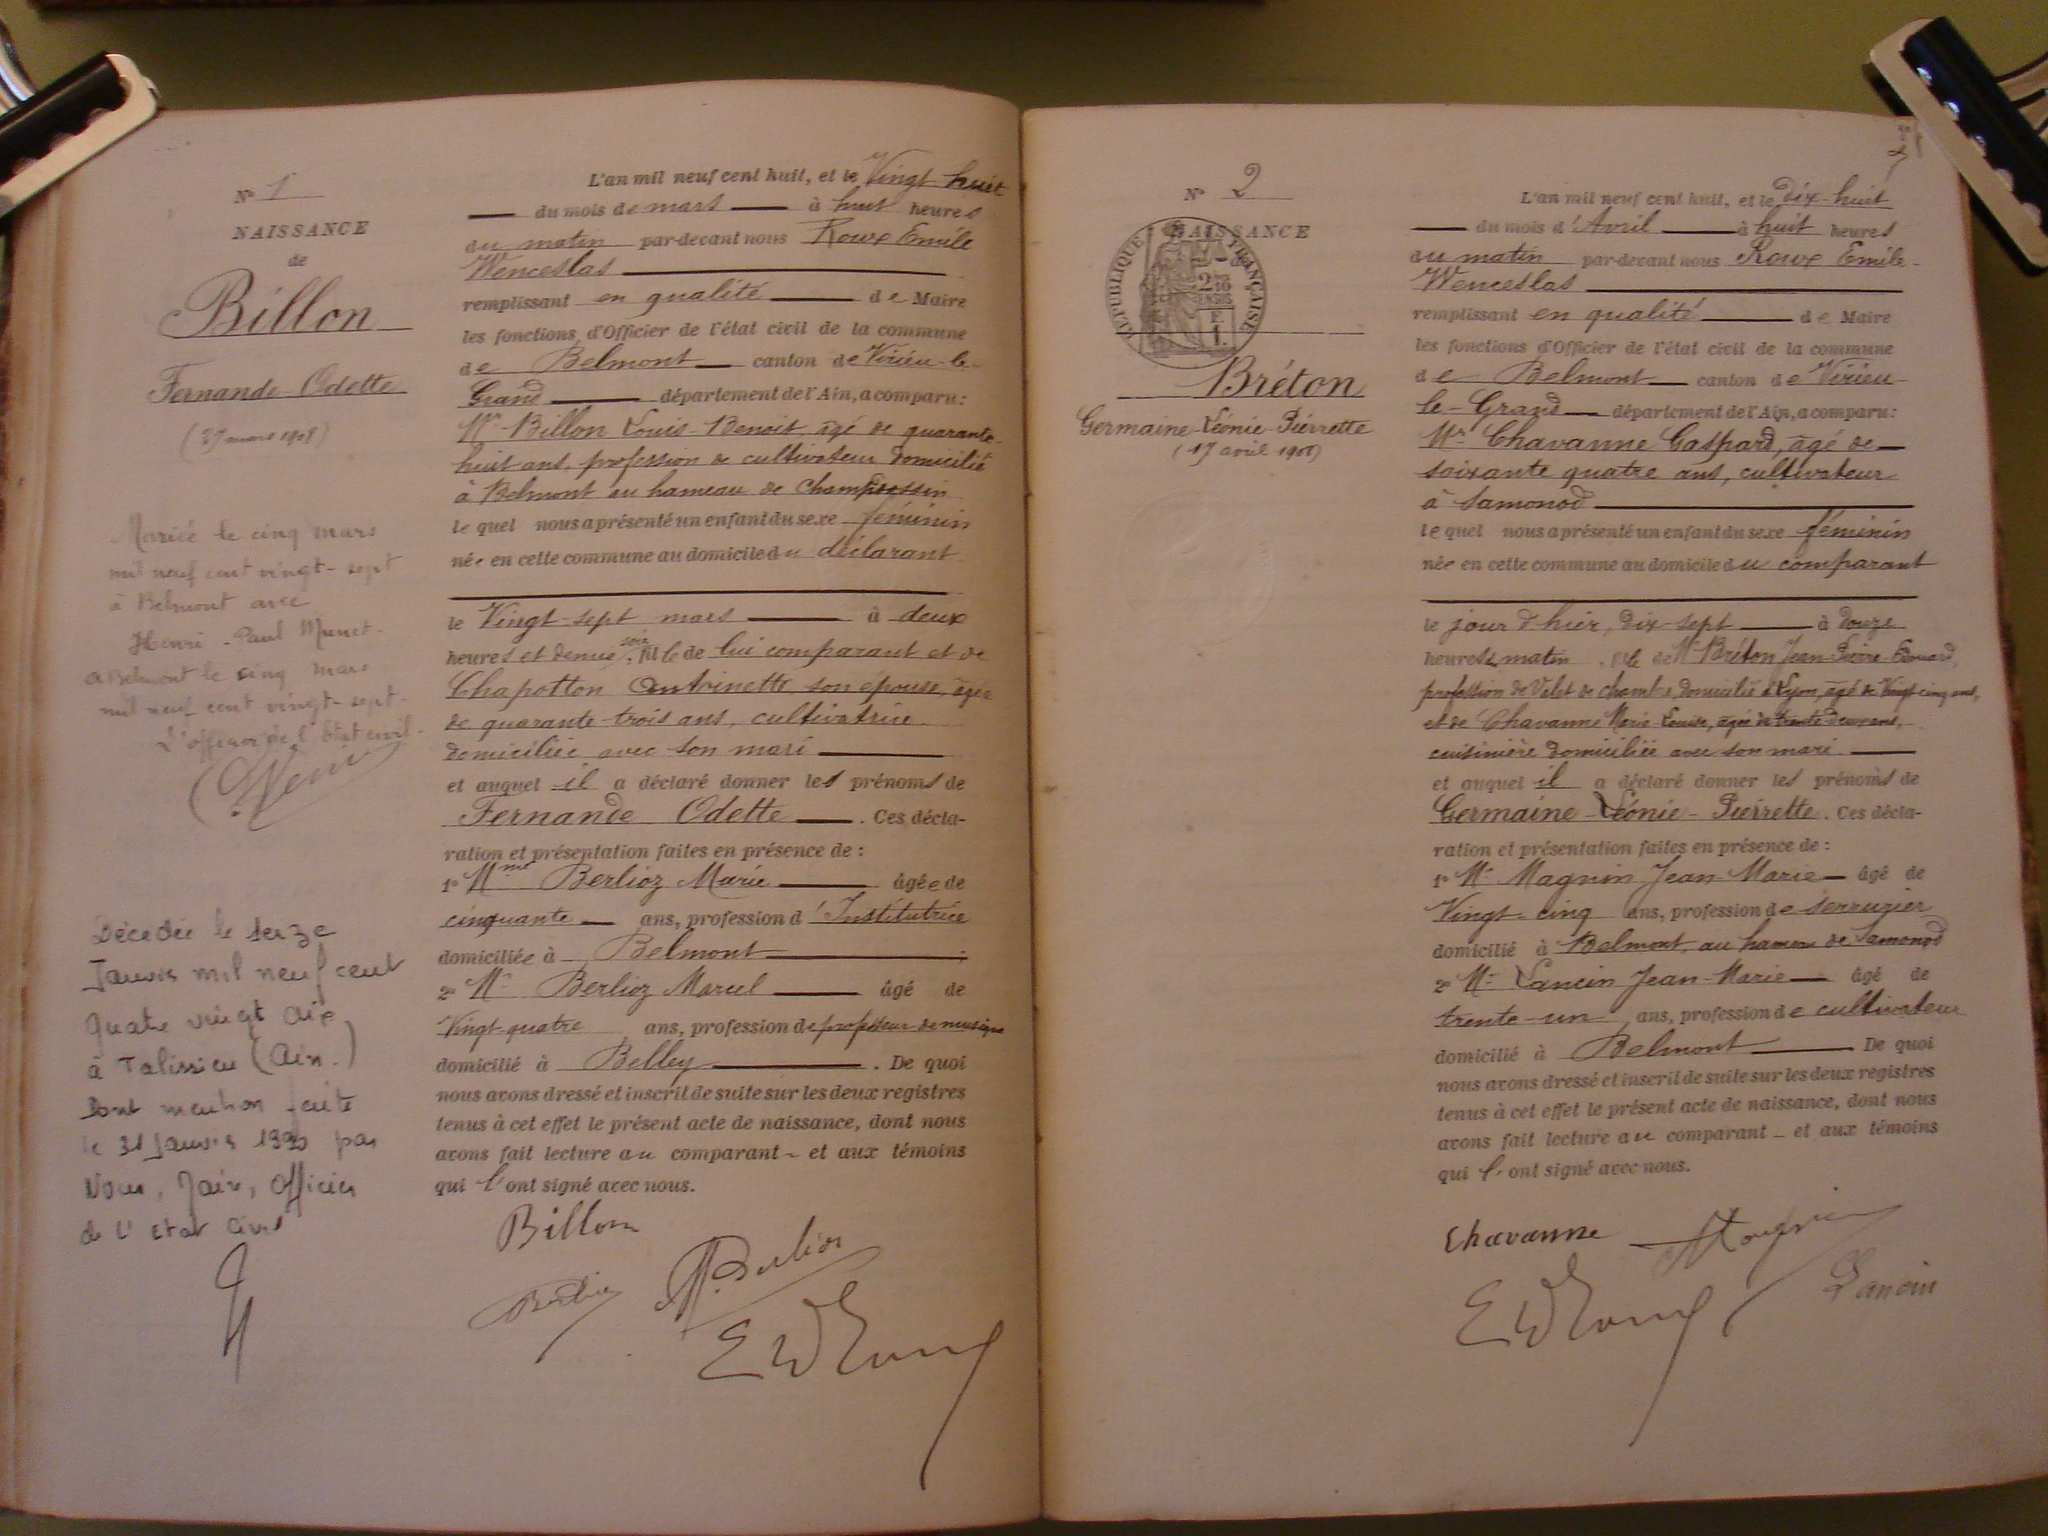 N° 1
NAISSANCE
de
Billon
Fernande Odette
(27 mars 1908)
Mariée le cinq mars
mil neuf cent vingt-sept
à Belmont avec
Henri-Paul Munet.
à Belmont le cinq mars
mil neuf cent vingt-sept.
L'officier de l'État civil.
Décédée le seize
Janvier mil neuf cent
quatre vingt dix
à Talissieu (Ain.)
Dont mention faite
le 31 Janvier 1990 par
Nous, Maire, Officier
de l'état civil
L'an mil neuf cent huit, et le Vingt huit
du mois de mars à huit heures
du matin par-devant nous Roux Emile
Wenceslas
remplissant en qualité de Maire
les fonctions d'Officier de l'état civil de la commune
de Belmont canton de Virieu-le-
Grand département de l'Ain, a comparu:
Mr Billon Louis-Benoit, âgé de quarante-
huit ans, profession de cultivateur domicilié
à Belmont au hameau de
lequel nous a présenté un enfant du sexe féminin
née en cette commune au domicile du déclarant
le Vingt-sept mars à deux
heures et demie soir, fille de lui comparant et de
Chapotton Antoinette son épouse, âgée
de quarante-trois ans, cultivatrice
domiciliée avec son mari
et auquel il a déclaré donner les prénoms de
Fernande Odette. Ces décla-
ration et présentation faites en présence de :
1° Mme Berlioz Marie âgée de
cinquante ans, profession d'Institutrice
domiciliée à Belmont ;
2° Mr Berlioz Marcel âgé de
Vingt-quatre ans, profession de professeur de musique
domicilié à Belley. De quoi
nous avons dressé et inscrit de suite sur les deux registres
tenus à cet effet le présent acte de naissance, dont nous
avons fait lecture au comparant et aux témoins
qui l'ont signé avec nous.
Billon
Berlioz
M. Berlioz
E W Roux
N° 2
NAISSANCE
RÉPUBLIQUE FRANÇAISE
Bréton
Germaine-Léonie-Pierrette
(17 avril 1908)
L'an mil neuf cent huit, et le dix-huit
du mois d'Avril à huit heures
du matin par-devant nous Roux Emile-
Wenceslas
remplissant en qualité de Maire
les fonctions d'Officier de l'état civil de la commune
de Belmont canton de Virieu-
le-Grand département de l'Ain, a comparu:
Mr Chavanne Gaspard, âgé de
soixante quatre ans, cultivateur
à Samonod
lequel nous a présenté un enfant du sexe féminin
née en cette commune au domicile du comparant
le jour d'hier, dix-sept à douze
heures matin, fille de Mr Bréton Jean-Pierre-Edouard,
profession de Valet de chambre, domicilié à Lyon, âgé de Vingt-cinq ans,
et de Chavanne Marie-Louise, âgée de trente deux ans,
cuisinière domiciliée avec son mari
et auquel il a déclaré donner les prénoms de
Germaine-Léonie-Pierrette. Ces décla-
ration et présentation faites en présence de :
1° Mr Magnin Jean-Marie âgé de
Vingt-cinq ans, profession de serrurier
domicilié à Belmont, au hameau de Samonod
2° Mr Lancin Jean-Marie âgé de
trente-un ans, profession de cultivateur
domicilié à Belmont De quoi
nous avons dressé et inscrit de suite sur les deux registres
tenus à cet effet le présent acte de naissance, dont nous
avons fait lecture au comparant et aux témoins
qui l'ont signé avec nous.
Chavanne
Magnin
E W Roux
Lancin